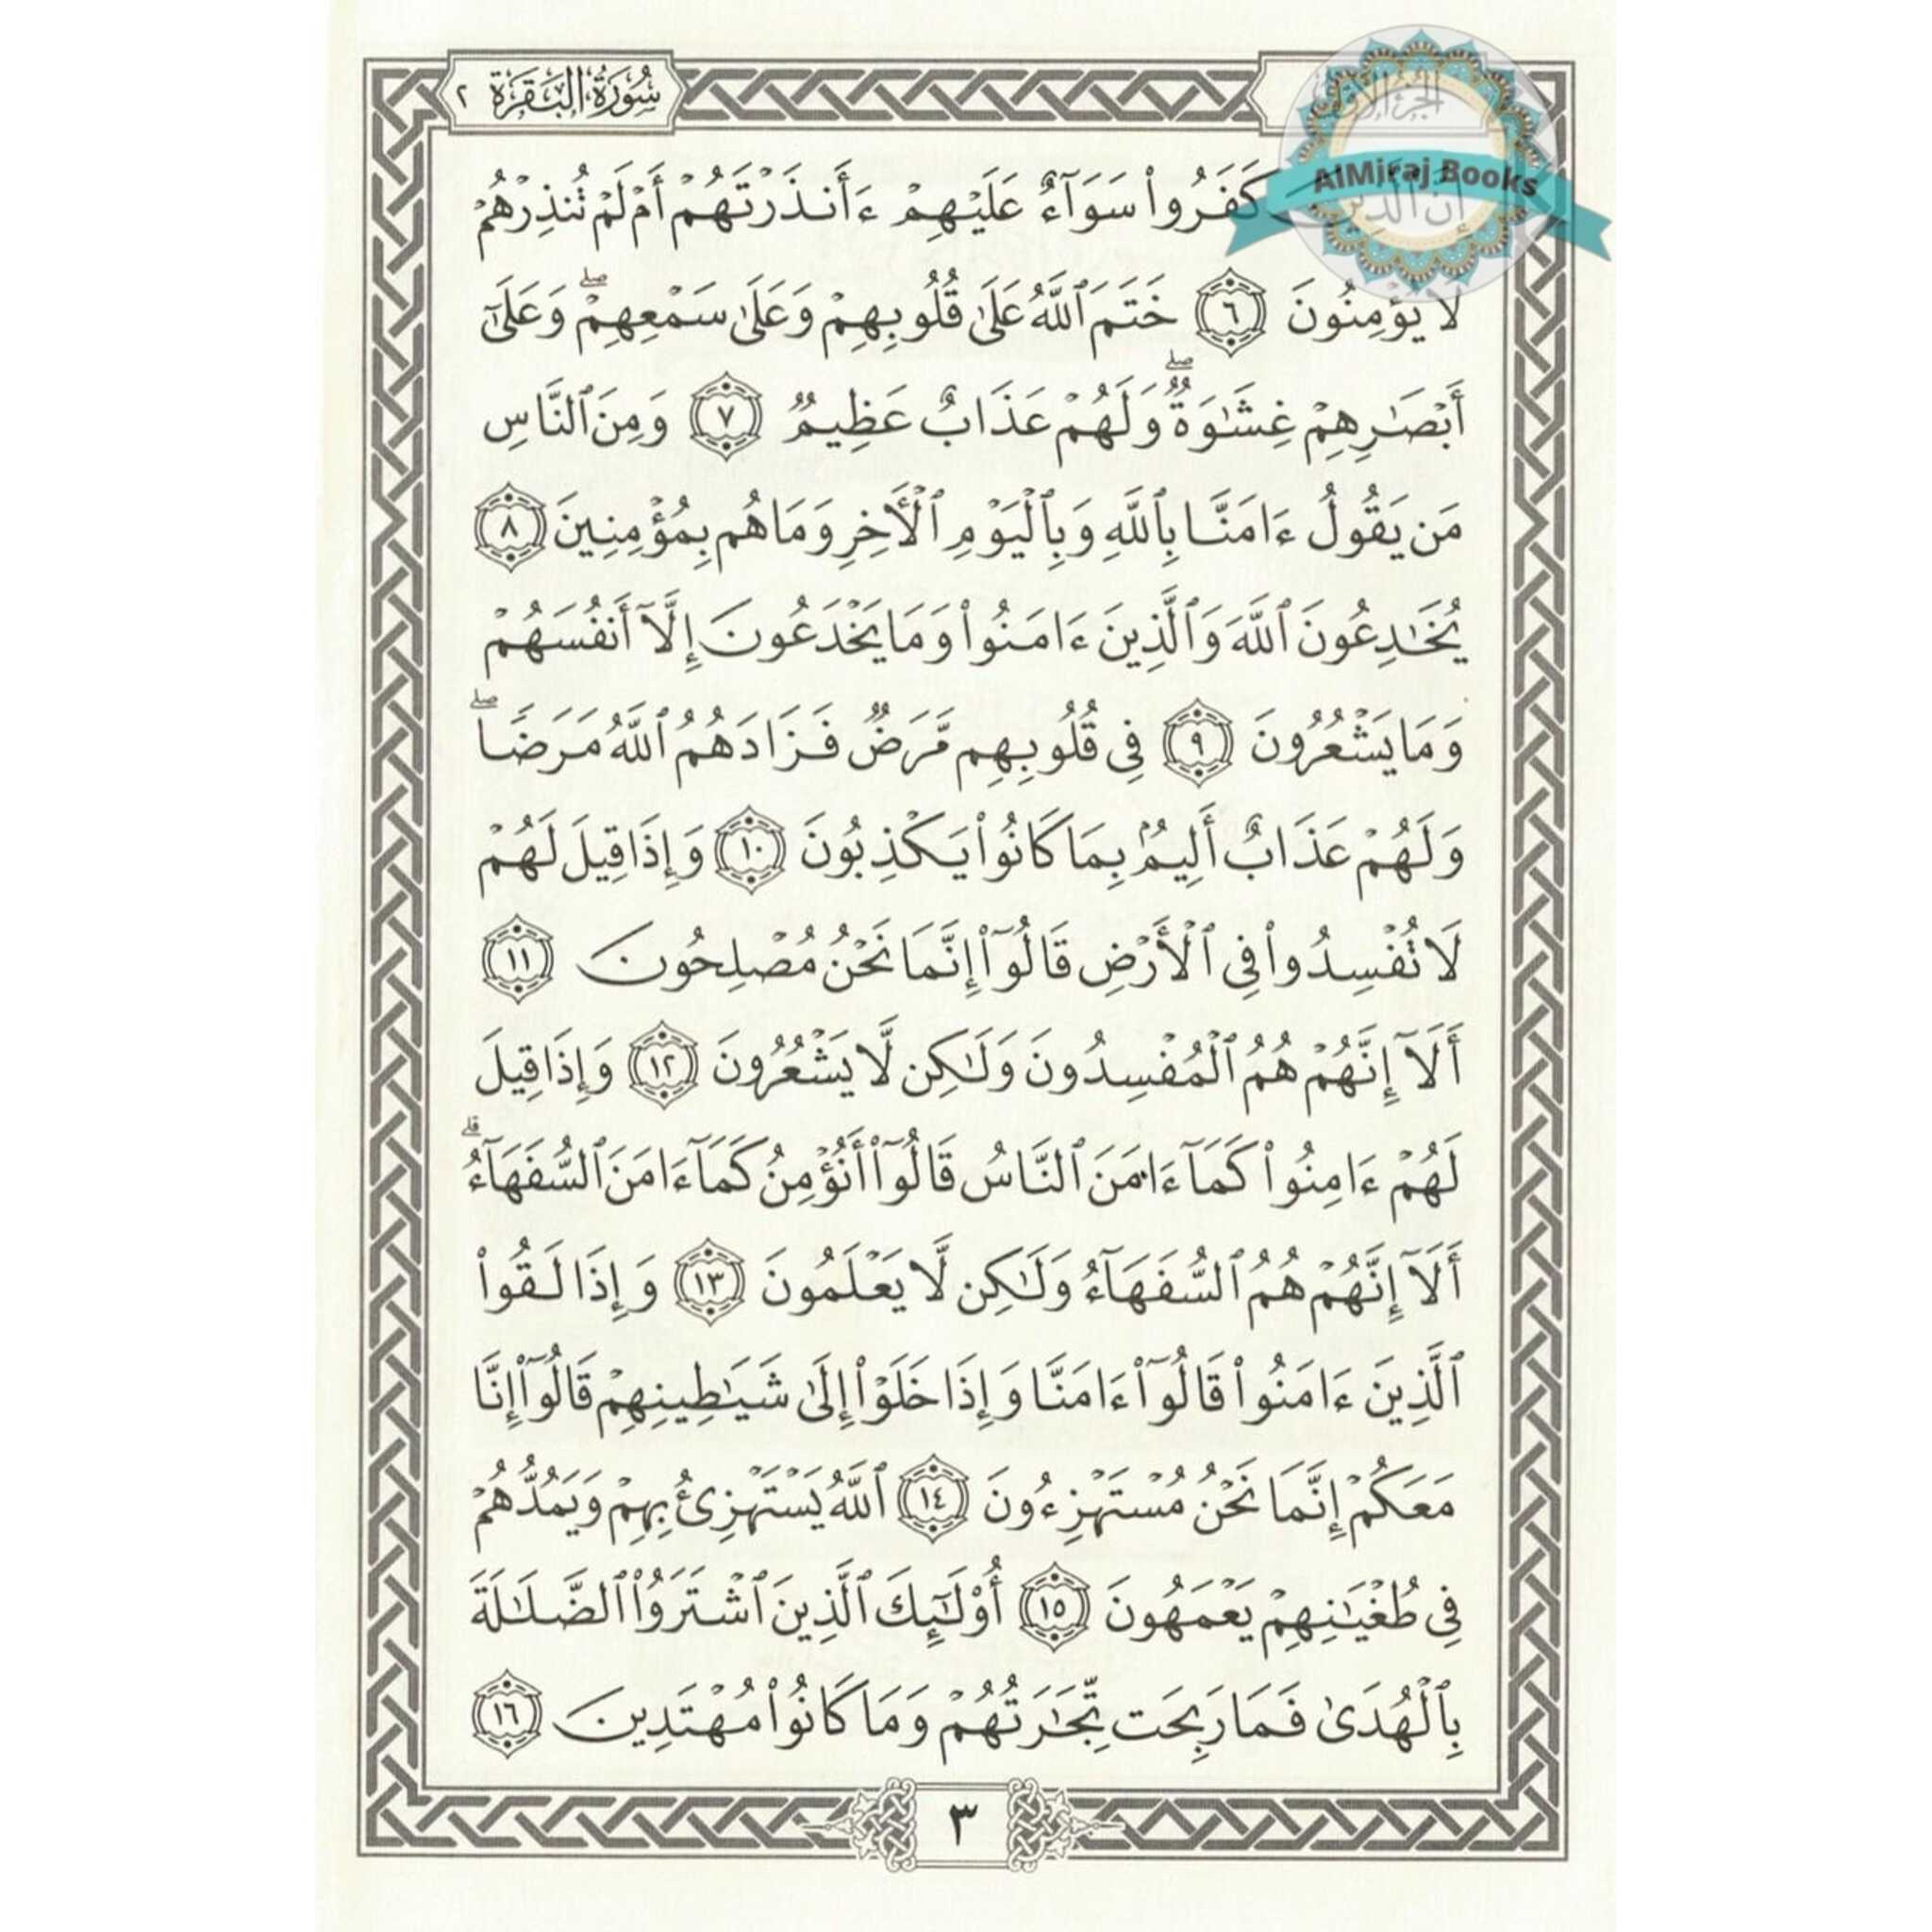 سُورَةُ البَقَرَةِ ٢
الجُزْءُ الأَوَّلُ
AlMiraj Books
إِنَّ ٱلَّذِينَ كَفَرُوا۟ سَوَآءٌ عَلَيْهِمْ ءَأَنذَرْتَهُمْ أَمْ لَمْ تُنذِرْهُمْ
لَا يُؤْمِنُونَ ٦ خَتَمَ ٱللَّهُ عَلَىٰ قُلُوبِهِمْ وَعَلَىٰ سَمْعِهِمْۖ وَعَلَىٰٓ
أَبْصَـٰرِهِمْ غِشَـٰوَةٌۖ وَلَهُمْ عَذَابٌ عَظِيمٌ ٧ وَمِنَ ٱلنَّاسِ
مَن يَقُولُ ءَامَنَّا بِٱللَّهِ وَبِٱلْيَوْمِ ٱلْأَخِرِ وَمَا هُم بِمُؤْمِنِينَ ٨
يُخَـٰدِعُونَ ٱللَّهَ وَٱلَّذِينَ ءَامَنُوا۟ وَمَا يَخْدَعُونَ إِلَّآ أَنفُسَهُمْ
وَمَا يَشْعُرُونَ ٩ فِى قُلُوبِهِم مَّرَضٌ فَزَادَهُمُ ٱللَّهُ مَرَضًاۖ
وَلَهُمْ عَذَابٌ أَلِيمٌۢ بِمَا كَانُوا۟ يَكْذِبُونَ ١٠ وَإِذَا قِيلَ لَهُمْ
لَا تُفْسِدُوا۟ فِى ٱلْأَرْضِ قَالُوٓا۟ إِنَّمَا نَحْنُ مُصْلِحُونَ ١١
أَلَآ إِنَّهُمْ هُمُ ٱلْمُفْسِدُونَ وَلَـٰكِن لَّا يَشْعُرُونَ ١٢ وَإِذَا قِيلَ
لَهُمْ ءَامِنُوا۟ كَمَآ ءَامَنَ ٱلنَّاسُ قَالُوٓا۟ أَنُؤْمِنُ كَمَآ ءَامَنَ ٱلسُّفَهَآءُۗ
أَلَآ إِنَّهُمْ هُمُ ٱلسُّفَهَآءُ وَلَـٰكِن لَّا يَعْلَمُونَ ١٣ وَإِذَا لَقُوا۟
ٱلَّذِينَ ءَامَنُوا۟ قَالُوٓا۟ ءَامَنَّا وَإِذَا خَلَوْا۟ إِلَىٰ شَيَـٰطِينِهِمْ قَالُوٓا۟ إِنَّا
مَعَكُمْ إِنَّمَا نَحْنُ مُسْتَهْزِءُونَ ١٤ ٱللَّهُ يَسْتَهْزِئُ بِهِمْ وَيَمُدُّهُمْ
فِى طُغْيَـٰنِهِمْ يَعْمَهُونَ ١٥ أُو۟لَـٰٓئِكَ ٱلَّذِينَ ٱشْتَرَوُا۟ ٱلضَّلَـٰلَةَ
بِٱلْهُدَىٰ فَمَا رَبِحَت تِّجَـٰرَتُهُمْ وَمَا كَانُوا۟ مُهْتَدِينَ ١٦
٣